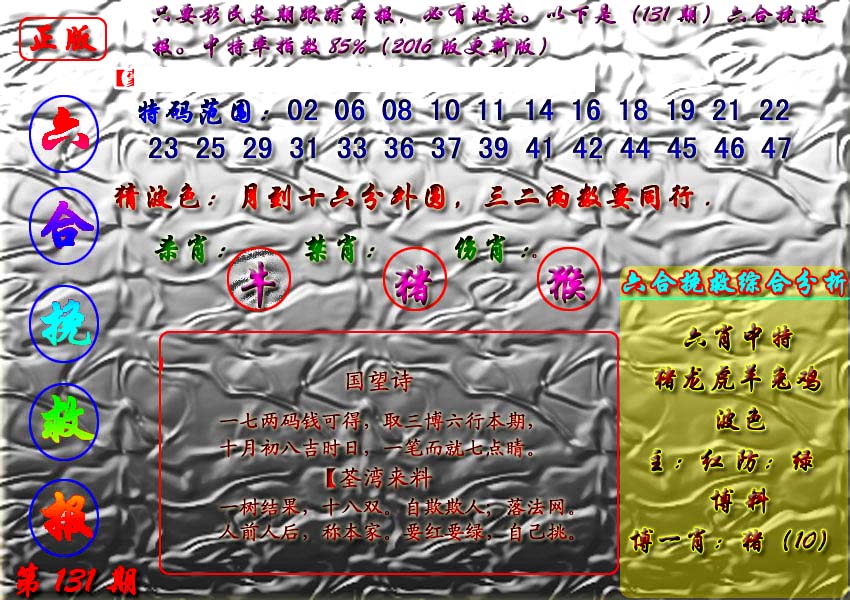 正版
只要彩民长期跟踪本报，必有收获。以下是（131期）六合挽救
报。中特率指数85%（2016版更新版）
六合挽救报
第131期
特码范围：02 06 08 10 11 14 16 18 19 21 22
23 25 29 31 33 36 37 39 41 42 44 45 46 47
猜波色：月到十六分外圆，三二两数要同行.
杀肖： 禁肖： 伤肖：。
牛 猪 猴
国望诗
一七两码钱可得，取三博六行本期，
十月初八吉时日，一笔而就七点睛。
【荃湾来料
一树结果，十八双。自欺欺人，落法网。
人前人后，称本家。要红要绿，自己挑。
六合挽救综合分析
六肖中特
猪龙虎羊兔鸡
波色
主：红防：绿
博料
博一肖：猪（10）